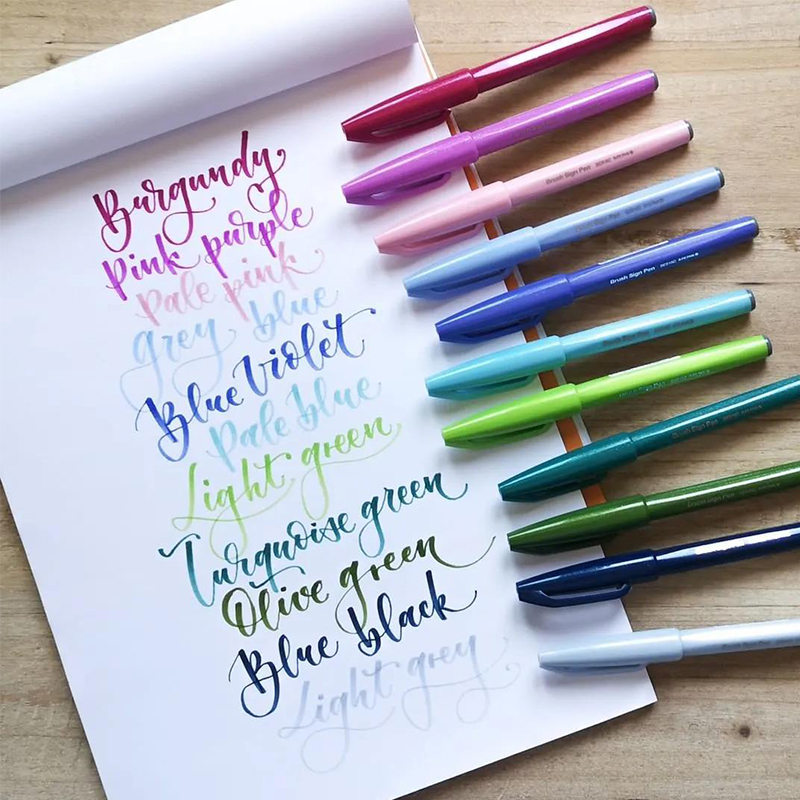 Burgundy
Pink purple
Pale pink
grey blue
Blue Violet
Pale blue
Light green
Turquoise green
Olive green
Blue black
Light grey
Brush Sign Pen
Brush Sign Pen
Brush Sign Pen
Brush Sign Pen
Brush Sign Pen
Brush Sign Pen
Brush Sign Pen